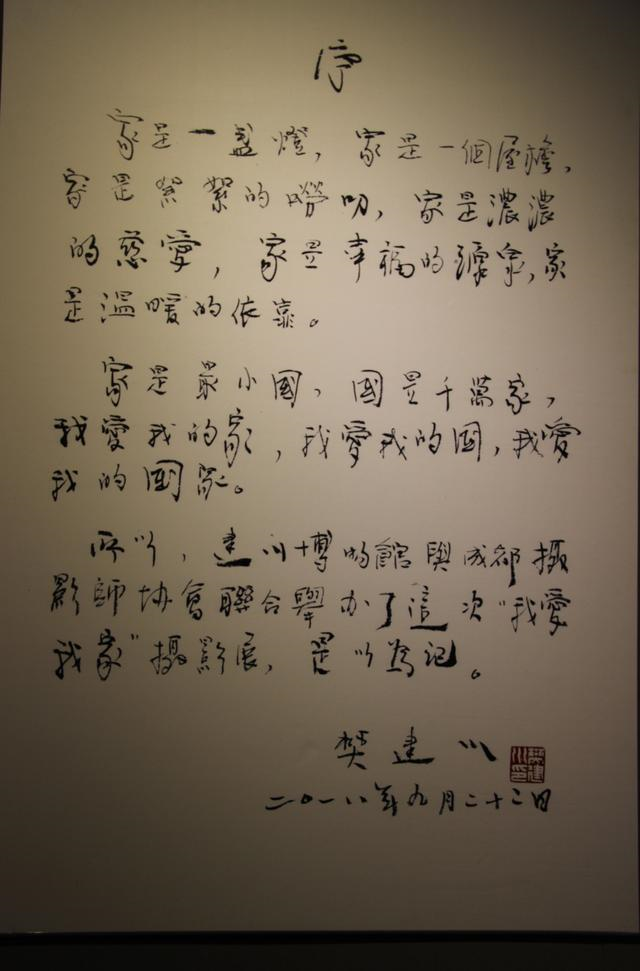 序
家是一盞燈，家是一個屋檐，
家是絮絮的嘮叨，家是濃濃
的慈愛，家是幸福的源泉，家
是溫暖的依靠。
家是最小國，國是千萬家，
我愛我的家，我愛我的國，我愛
我的國家。
所以，建川博物館與成都攝
影師協會聯合舉办了這次“我愛
我家”攝影展，是以為記。
樊建川
樊建川印
二〇一八年九月二十二日